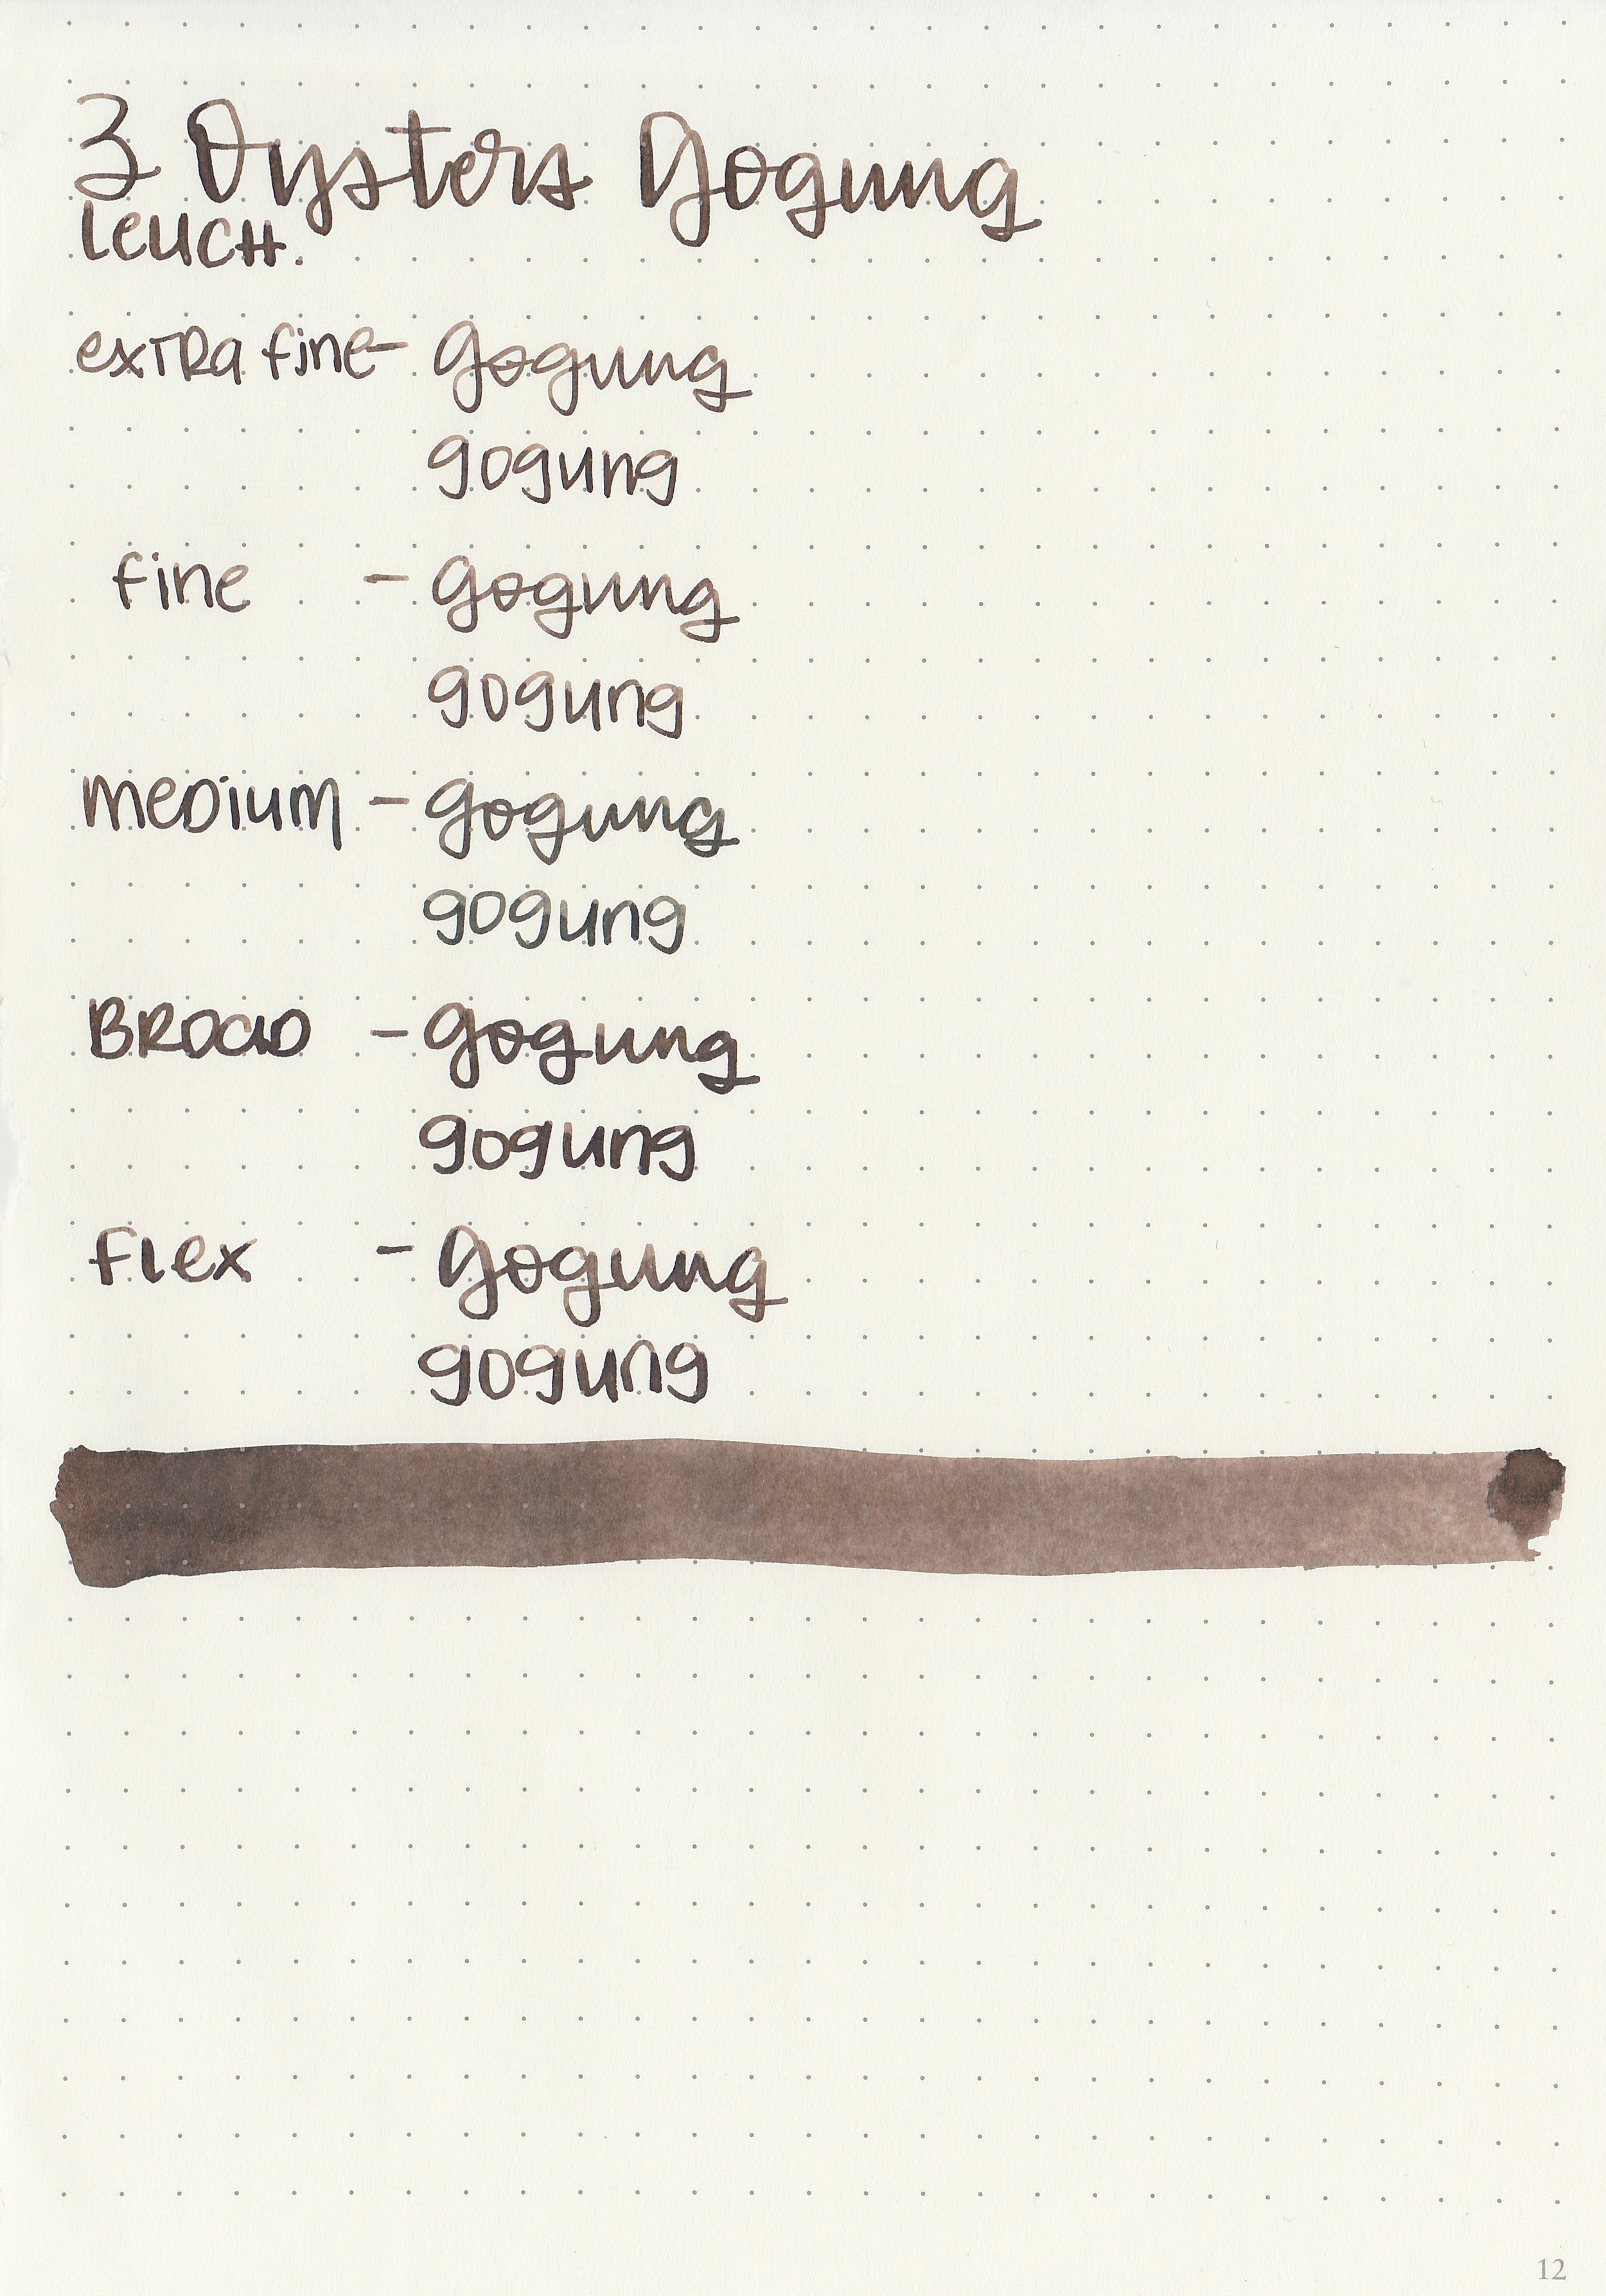 3 Oysters Gogung
Leuch.
extra fine - gogung
gogung
fine - gogung
gogung
medium - gogung
gogung
Broad - gogung
gogung
flex - gogung
gogung
12